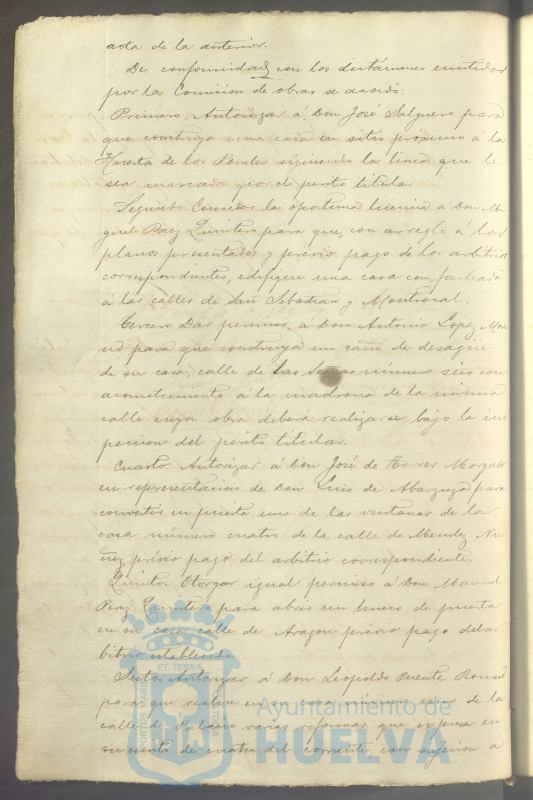 acta de la anterior.
De conformidad con los dictámenes emitidos
por la Comision de obras se acordó:
Primero. Autorizar á Don José Salguero para
que construya una casa en sitio próximo á la
Huerta de los Perales siguiendo la linea que le
sea marcada por el perito titular
Segundo. Conceder la oportuna licencia a Don Mi
guel Baez Quintero para que, con arreglo á los
planos presentados y prévio pago de los arbitrios
correspondientes, edifique una casa con fachada
á las calles de San Sebastian y Montrocal.
Tercero. Dar permiso á Don Antonio Lopez More
no para que construya un caño de desagüe
de su casa, calle de las número seis con
acometimiento á la madrona de la misma
calle cuya obra deberá realizarse bajo la ins
peccion del perito titular.
Cuarto. Autorizar á Don José de Torres Morgado
en representacion de Don Luis de Abarzuza para
convertir en puerta una de las ventanas de la
casa número cuatro de la calle de Mendez Nu
ñez, prévio pago del arbitrio correspondiente.
Quinto. Otorgar igual permiso á Don Manuel
Perez Quintero para abrir un hueco de puerta
en su casa calle de Aragon prévio pago del ar
bitrio establecido.
Sesto. Autorizar á Don Leopoldo Puente
para que realice en su casa número de la
calle de Palacio varias reformas que expresa en
su escrito de cuatro del corriente con sujecion a
PORTUS MARIS
ET TERRÆ
CUSTODIA
Ayuntamiento de
HUELVA